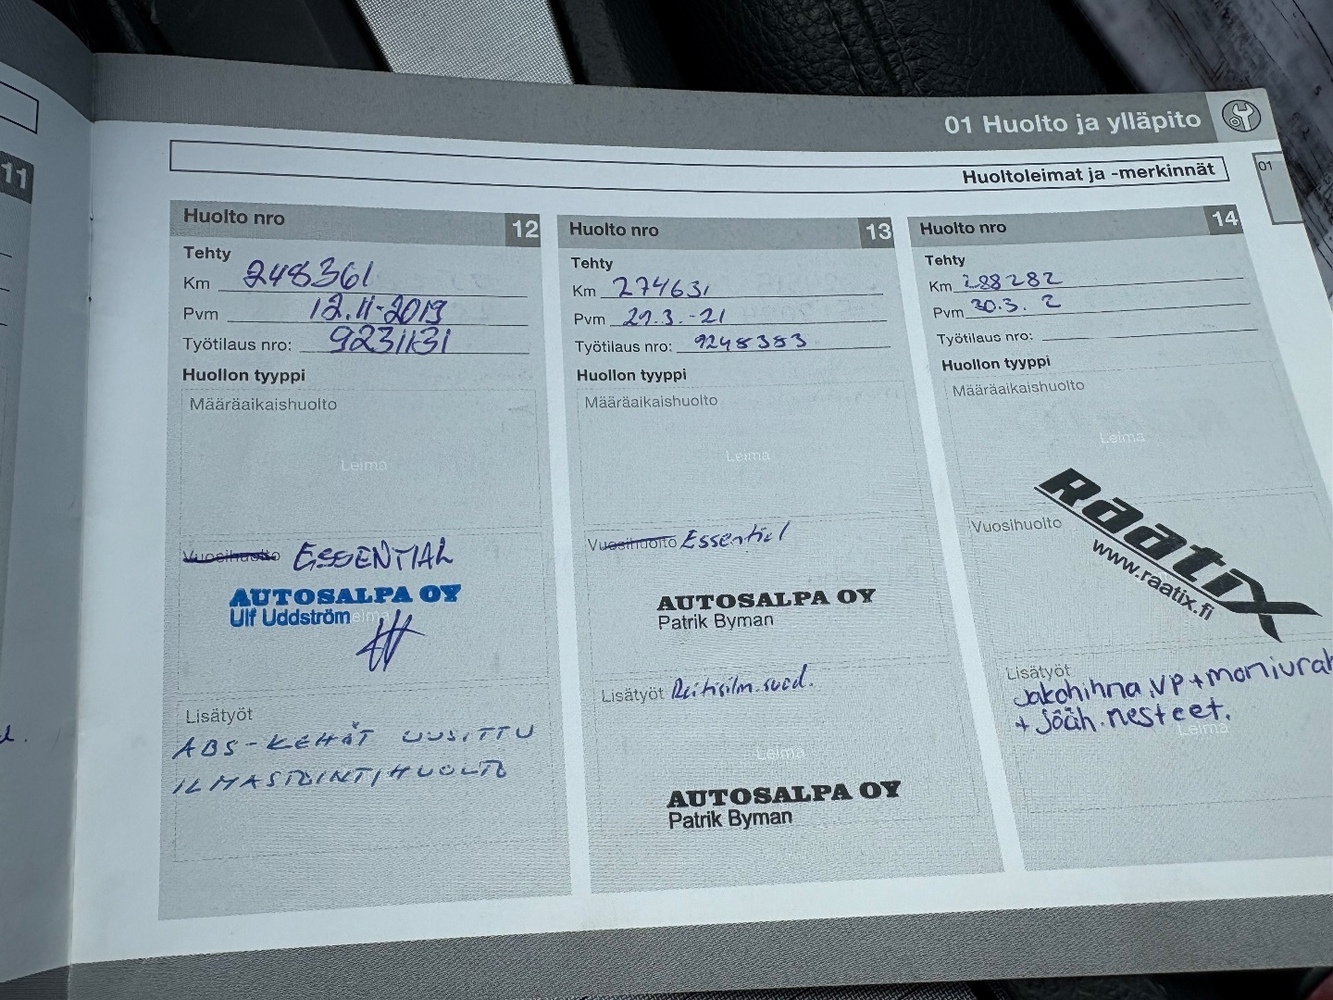 01 Huolto ja ylläpito
01
Huoltoleimat ja -merkinnät
11
Huolto nro 12
Tehty
Km 248361
Pvm 12.11-2019
Työtilaus nro: 9231131
Huollon tyyppi
Määräaikaishuolto
Leima
Vuosihuolto ESSENTIAL
AUTOSALPA OY
Ulf Uddström
Lisätyöt
ABS-KEHÄT UUSITTU
ILMASTOINTIHUOLTO
Huolto nro 13
Tehty
Km 274631
Pvm 29.3.-21
Työtilaus nro: 9248383
Huollon tyyppi
Määräaikaishuolto
Leima
Vuosihuolto Essential
AUTOSALPA OY
Patrik Byman
Lisätyöt
Leima
AUTOSALPA OY
Patrik Byman
Huolto nro 14
Tehty
Km 288282
Pvm 30.3. 2
Työtilaus nro:
Huollon tyyppi
Määräaikaishuolto
Leima
Vuosihuolto
Raatix
www.raatix.fi
Lisätyöt
Jakohihna, VP + moniurah
+ jääh. nesteet.
Leima